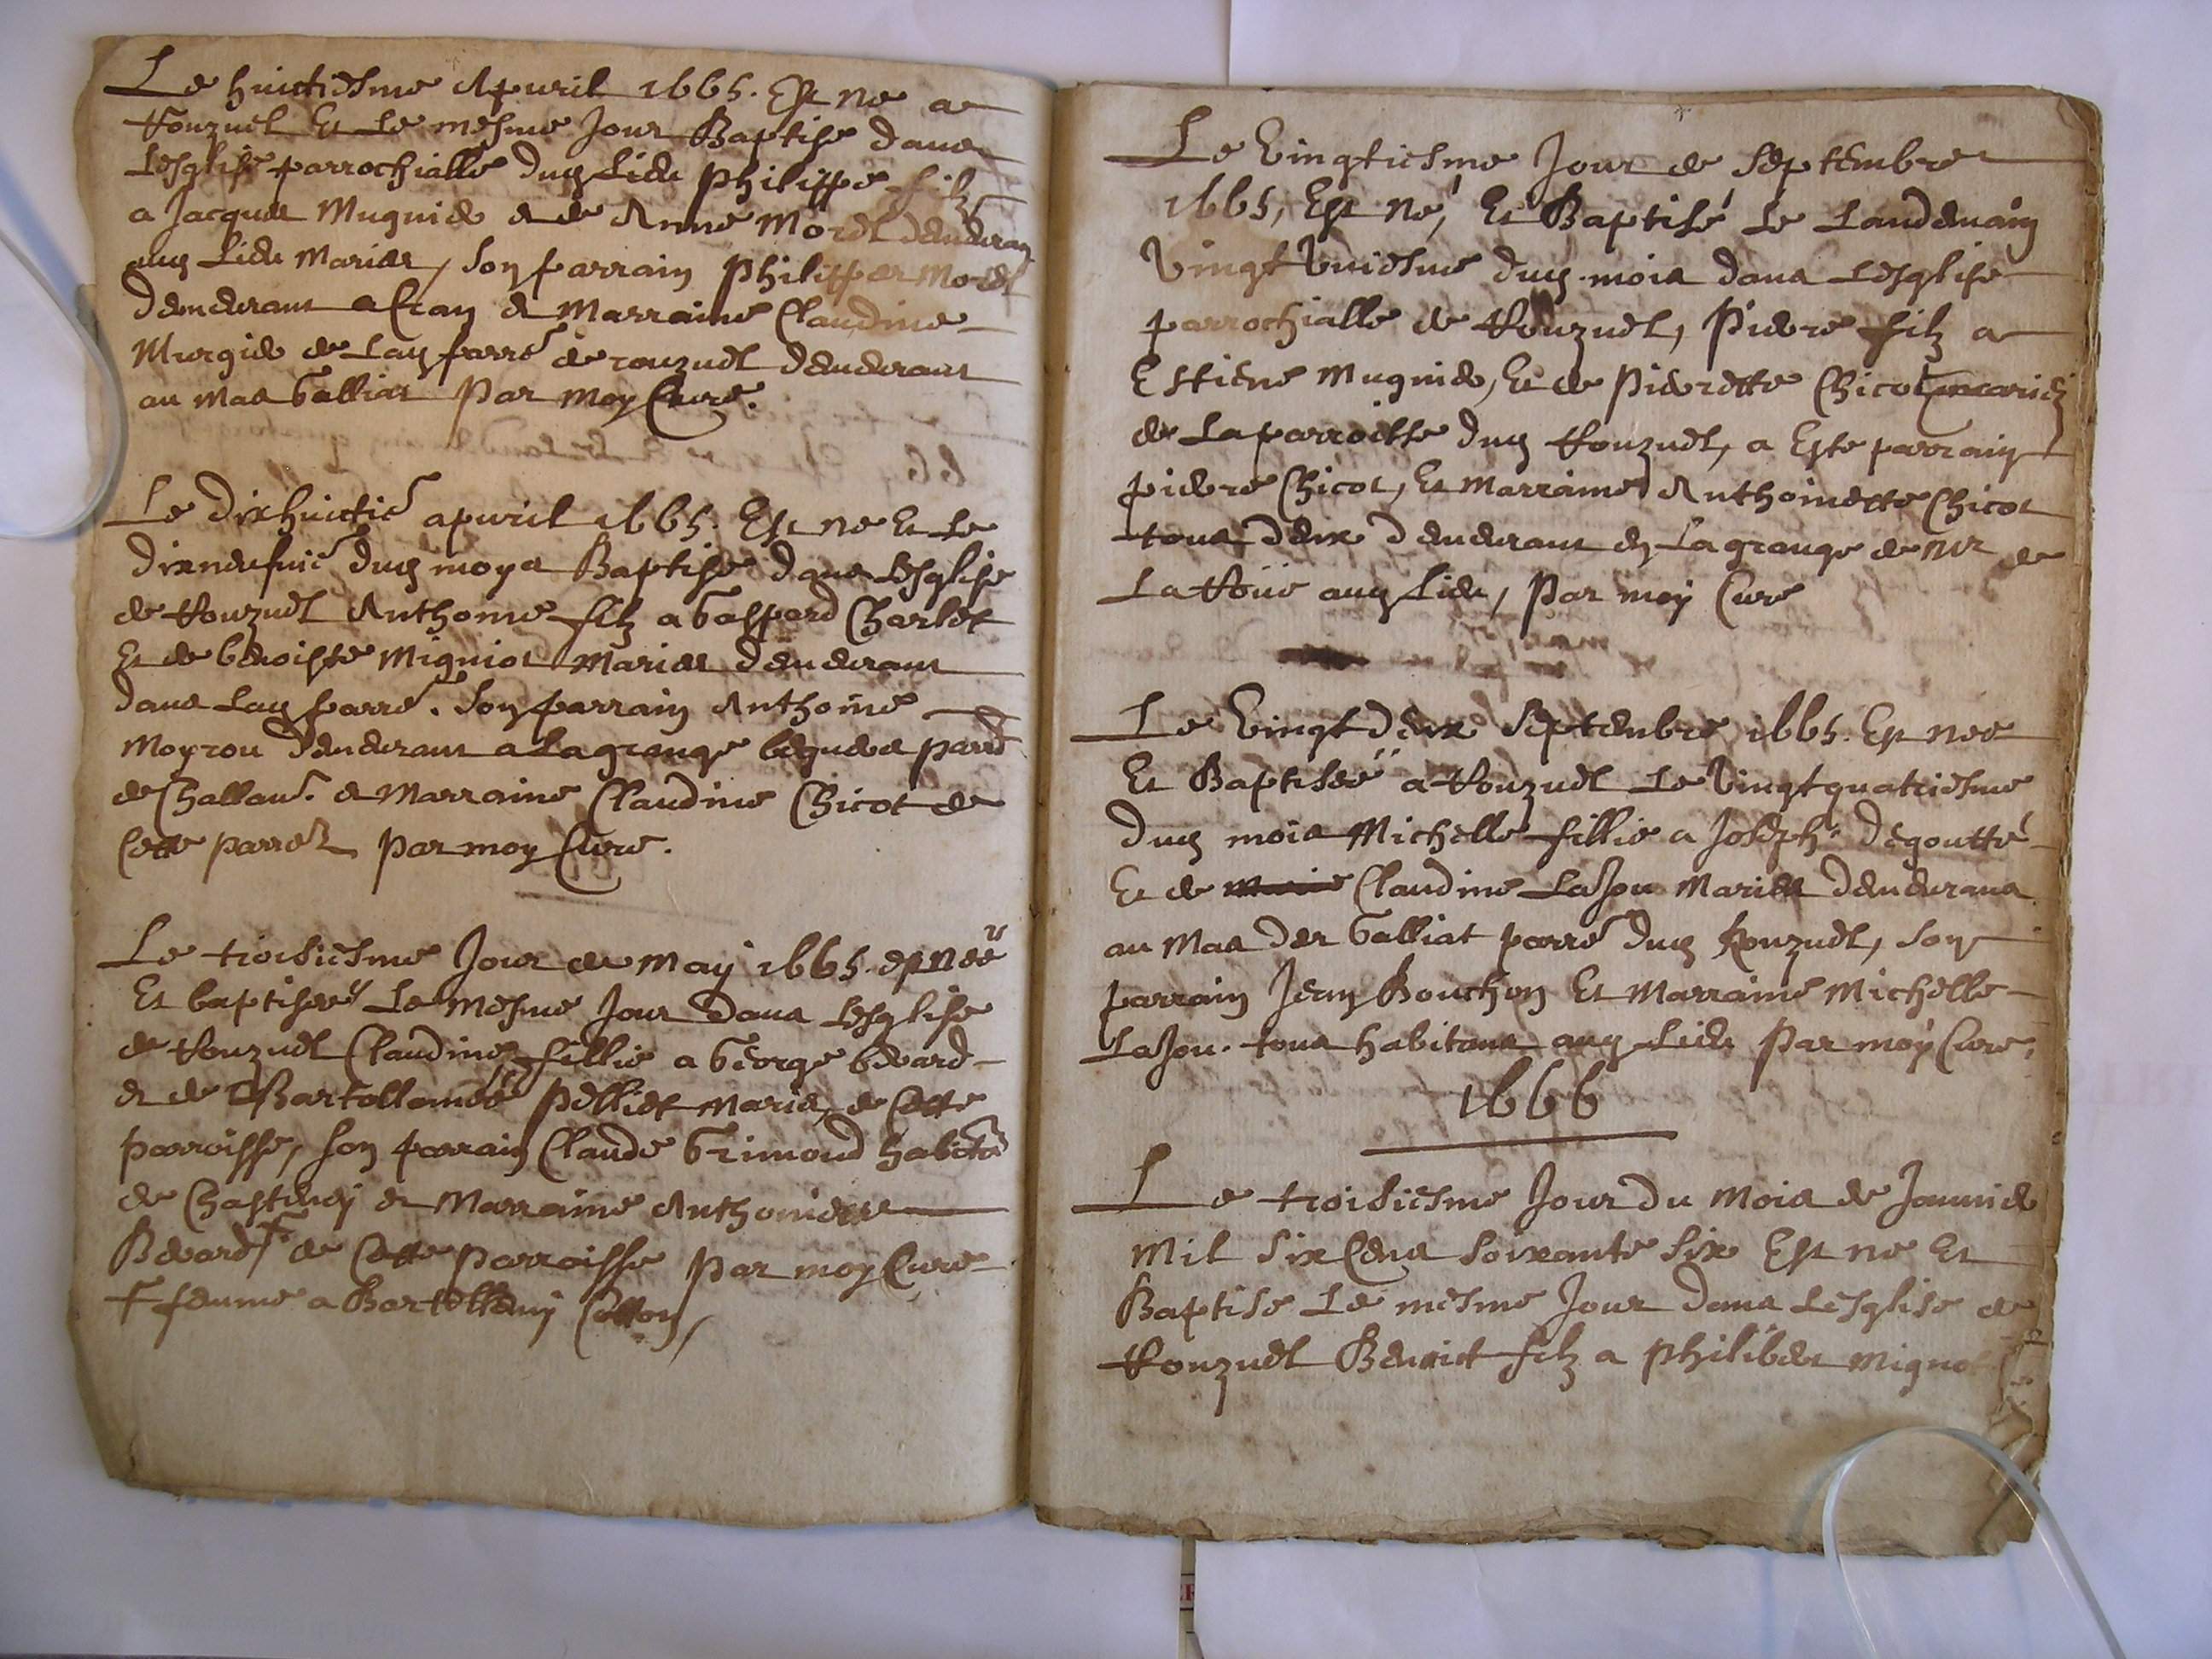 Le huictiesme Apuril 1665. Est ne a
Ronzuel Et Le mesme Jour Baptise dans
Lesglise parrochialle dud Lieu Philippe filz
a Jacques Muguie & de Anne Morel demeurans
aud Lieu Maries, son parrain Philippes Morel
demeurant a Cran & Marraine Claudine
Murgie de Lad parre de ronzuel demeurant
au Mas Galliat Par moy Cure.
Le dixhuictie apuril 1665. Est ne Et Le
dixneufuie dud moys Baptise dans Lesglise
de Ronzuel Anthoine filz a Gaspard Charlet
Et de benoiste Migniot Maries demeurans
dans Lad parre. Son parrain Anthoine
Moyrou demeurant a La grange parre
de Challau. & Marraine Claudine Chicot de
Cette parre Par moy Cure.
Le troisiesme Jour de May 1665. est née
Et baptisée Le mesme Jour dans Lesglise
de Ronzuel Claudine fillie a George beuard
& de Bartollomée Pelliet Maries de Cette
parroisse, son parrain Claude Grimond habitan
de Chastenay & Marraine Anthoinette
Beuard + de Cette Parroisse Par moy Cure
+ femme a Bartellemy Cotton,
Le Vingtiesme Jour de Septembre
1665, Est Né, Et Baptisé Le Landemain
Vingt Vniesme dud mois dans Lesglise
parrochialle de Ronzuel, Pierre filz a
Estiene Muguie, Et de Pierrette Chicot mariez
de La parroisse dud Ronzuel, a Este parrain
pierre Chicot, Et Marraine Anthoinette Chicot
tous deux demeurans en La grange de Mr de
La Roüe aud Lieu, Par moy Cure
Le Vingt deux Septembre 1665. Est née
Et Baptisée a Ronzuel Le Vingtquatriesme
dud mois Michelle fillie a Joseph degoutte
Et de Marie Claudine Lajou Maries demeurans
au Mas de Galliat parre dud Ronzuel, son
parrain Jean Bouchon Et Marraine Michelle
Lajou. tous habitans aud Lieu Par moy Cure,
1666
Le troisiesme Jour du Mois de Januie
Mil Six Cens Soixante Six Est ne Et
Baptise Le mesme Jour dans Lesglise de
Ronzuel Benoict filz a Philibert Mignot